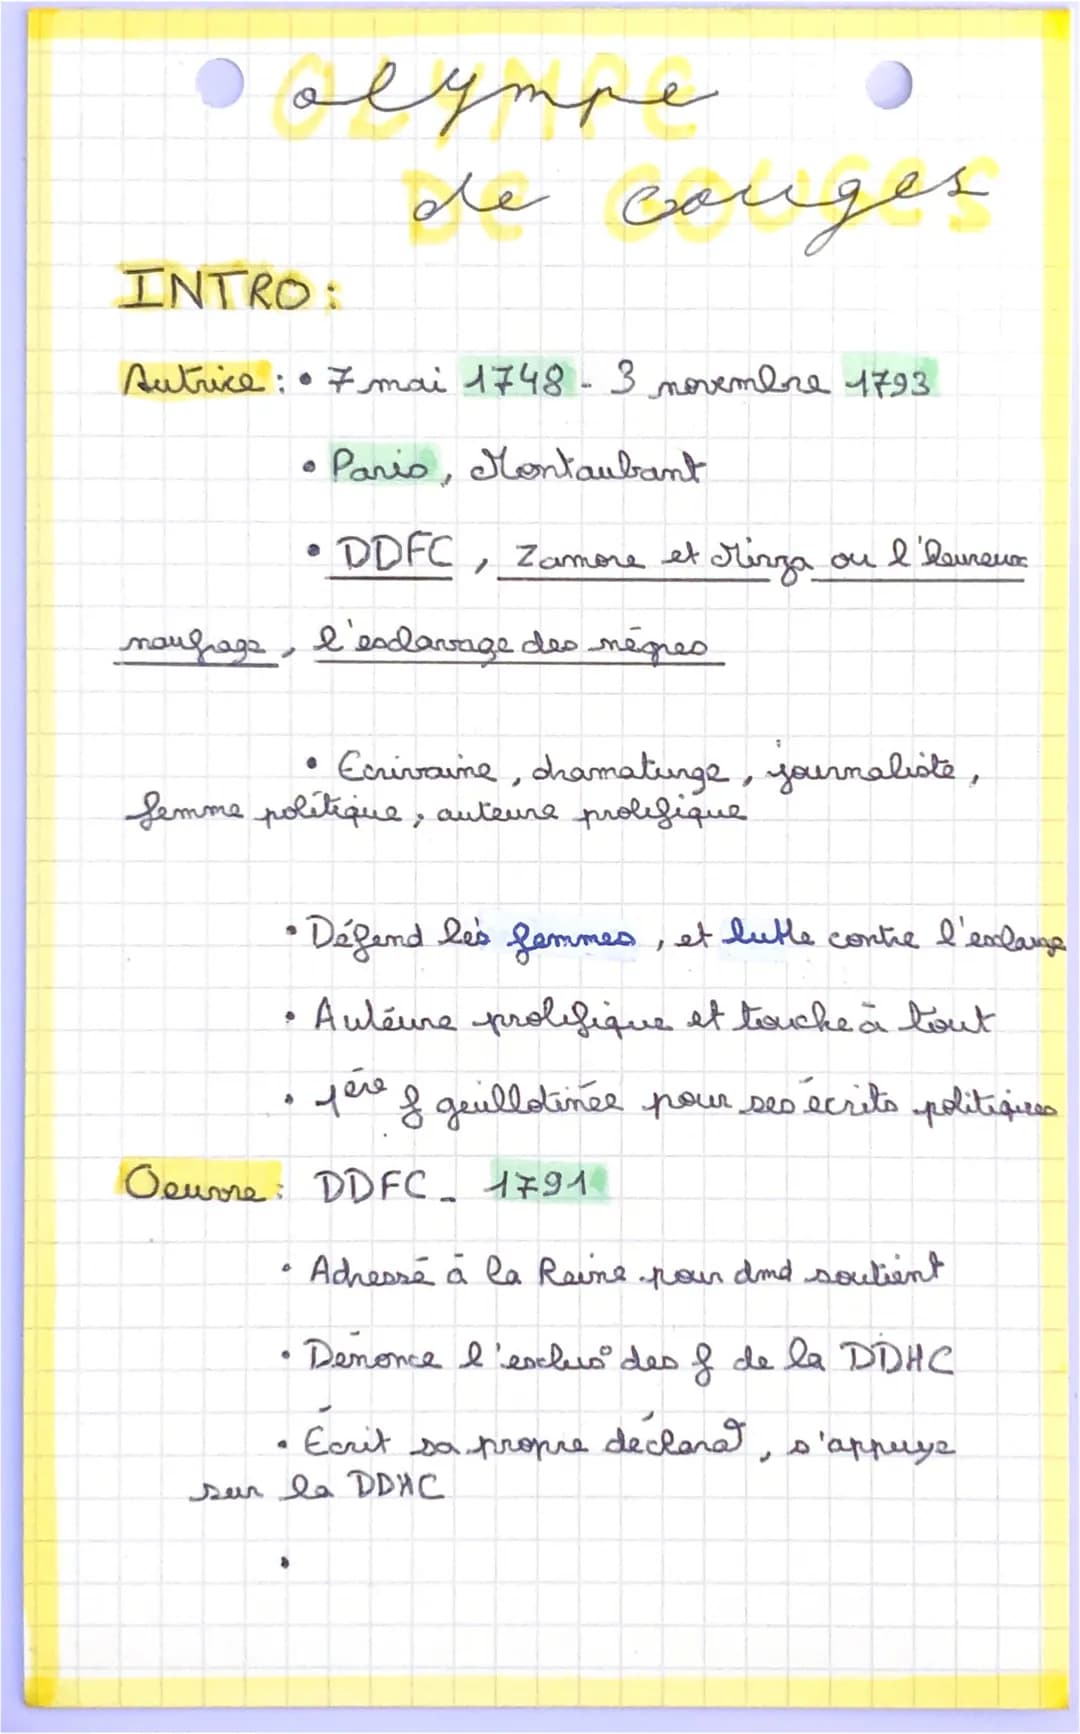 olympe
OLYMPE
de Gouges
DE GOUGES
INTRO :
Autrice : • 7 mai 1748 - 3 novembre 1793
• Paris, Montaubant
• DDFC, Zamore et Mirza ou l'heureux
naufrage, l'esclavage des nègres
• Ecrivaine, dramaturge, journaliste,
femme politique, auteure prolifique
• Défend les femmes, et lutte contre l'esclavge
• Auteure prolifique et touche à tout
• 1ère f guillotinée pour ses écrits politiques
Oeuvre : DDFC - 1791
• Adressé à la Reine pour dmd soutient
• Dénonce l'exclus° des f de la DDHC
• Écrit sa propre déclarat°, s'appuye
sur la DDHC
•